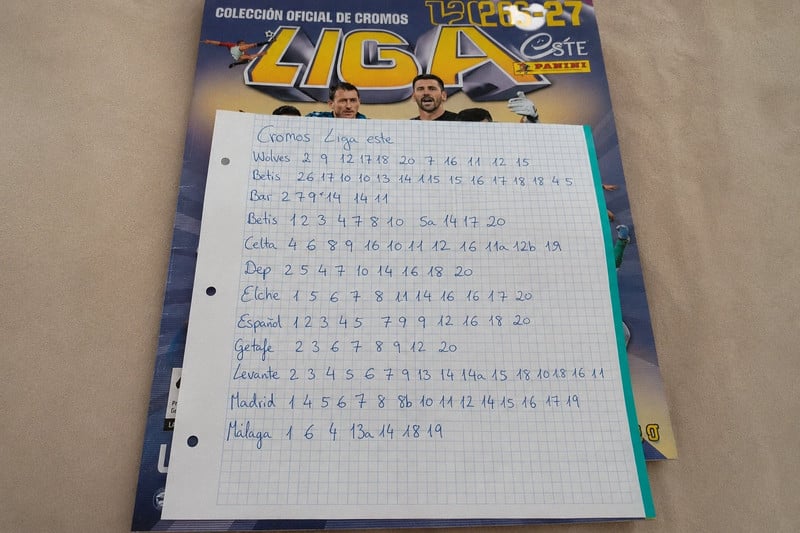 COLECCIÓN OFICIAL DE CROMOS
LIGA
ESTE
PANINI
Cromos Liga este
Wolves 2 9 12 17 18 20 7 16 11 12 15
Betis 26 17 10 10 13 14 1 15 15 16 17 18 18 4 5
Bar 2 7 9 14 14 11
Betis 1 2 3 4 7 8 10 5a 14 17 20
Celta 4 6 8 9 16 10 11 12 16 11a 12b 19
Dep 2 5 4 7 10 14 16 18 20
Elche 1 5 6 7 8 11 14 16 16 17 20
Español 1 2 3 4 5 7 9 9 12 16 18 20
Getafe 2 3 6 7 8 9 12 20
Levante 2 3 4 5 6 7 9 13 14 14a 15 18 10 18 16 11
Madrid 1 4 5 6 7 8 8b 10 11 12 14 15 16 17 19
Málaga 1 6 4 13a 14 18 19